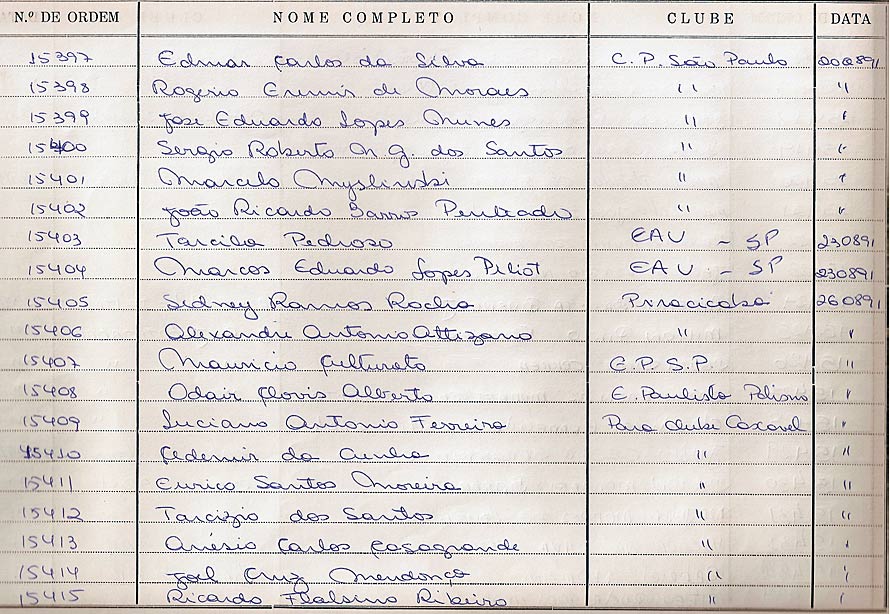 N.º DE ORDEM NOME COMPLETO CLUBE DATA
15397 Edmar Carlos da Silva C. P. São Paulo 200891
15398 Rogerio Ermir de Moraes " "
15399 Jose Eduardo Lopes Nunes " "
15400 Sergio Roberto M G. dos Santos " "
15401 Marcelo Myslinski " "
15402 João Ricardo Barros Penteado " "
15403 Tarcila Pedroso EAU - SP 230891
15404 Marcos Eduardo Lopes Piliot EAU - SP 230891
15405 Sidney Ramos Rocha Piracicaba 260891
15406 Alexandre Antonio Attizano " "
15407 Mauricio C. P. S. P. "
15408 Odair Clovis Alberto E. Paulista "
15409 Luciano Antonio Ferreira Para Clube Cascavel "
15410 Cedemir da Cunha " "
15411 Eurico Santos Moreira " "
15412 Tarcizio dos Santos " "
15413 Anésio Carlos Casagrande " "
15414 Joel Cruz Mendonça " "
15415 Ricardo Ribeiro " "